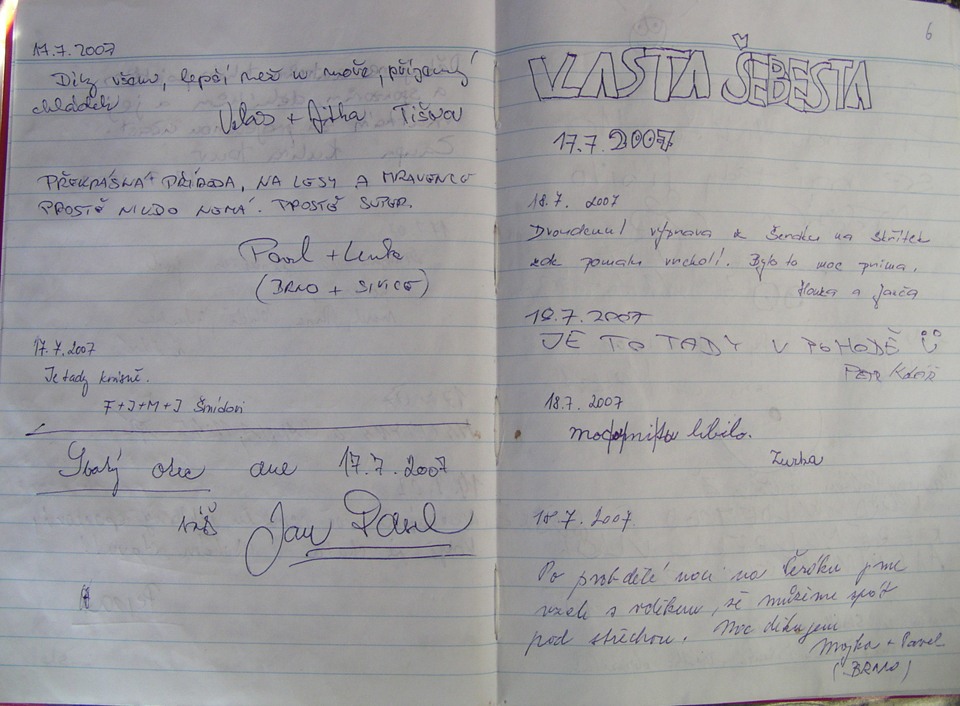 17.7.2007
Díky všem, lepší než u moře, příjemný
chládek
+ Jitka Tišnov
PŘEKRÁSNÁ PŘÍRODA, NA LESY A MRAVENCE
PROSTĚ NIKDO NEMÁ. PROSTĚ SUPER.
Pavel + Lenka
(BRNO + SIVICE)
17.7.2007
Je tady krásně.
F+J+M+J Šmídovi
otec dne 17.7.2007
náš Jan Pavel
6
VLASTA ŠEBESTA
17.7.2007
18.7. 2007
Dvoudenní výprava z Šeráku na Skřítek
pomalu vrcholí. Bylo to moc prima.
Hanka a Janča
18.7.2007
JE TO TADY V POHODĚ
Petr
18.7.2007
líbilo.
Zurba
18.7.2007
Po probdělé noci na Šeráku jsme
vzali s vděkem, že můžeme spát
pod střechou. Moc děkujeme
Majka + Pavel
(BRNO)